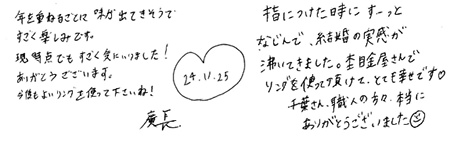 年を重ねるごとに味が出てきそうで
すごく楽しみです。
現時点でもすごく気にいりました!
ありがとうございます。
今後もよいリングを使って下さいね!
24.11.25
指につけた時にすーっと
なじんで、結婚の実感が
沸いてきました。杢目金屋さんで
リングを使って頂けて、とても幸せです♡
千葉さん、職人の方々、本当に
ありがとうございました☺